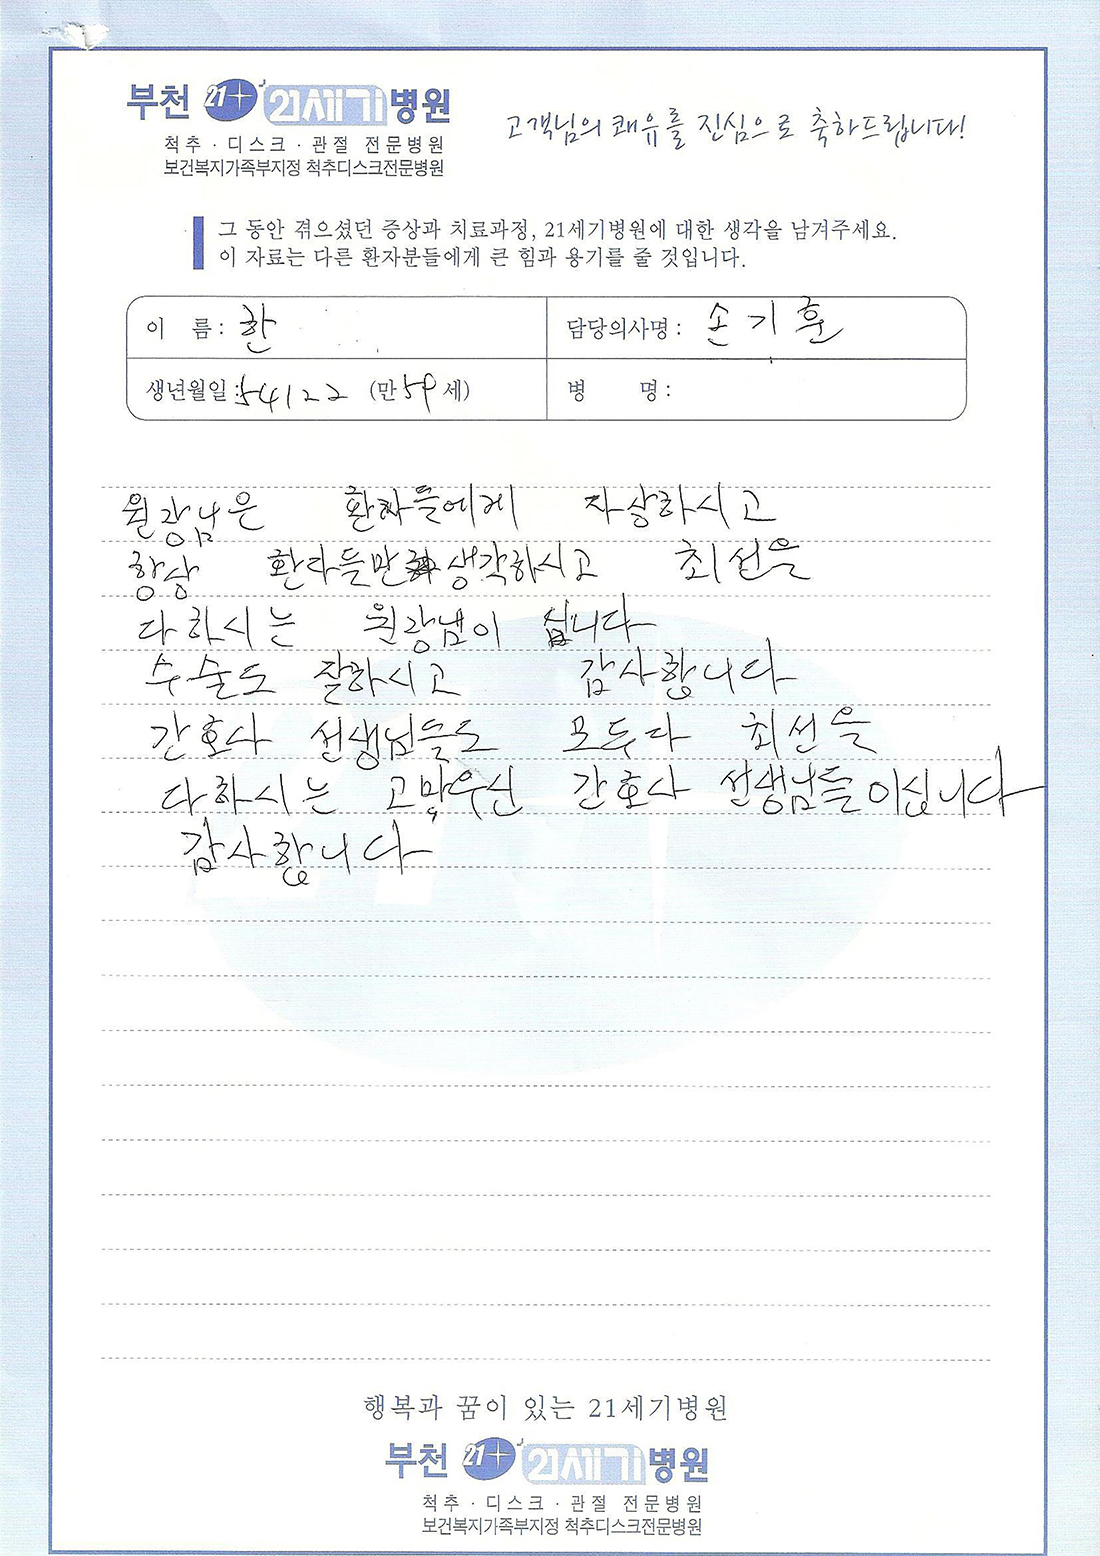 부천 21+ 21세기병원
척추 · 디스크 · 관절 전문병원
보건복지가족부지정 척추디스크전문병원
고객님의 쾌유를 진심으로 축하드립니다!
그 동안 겪으셨던 증상과 치료과정, 21세기병원에 대한 생각을 남겨주세요.
이 자료는 다른 환자분들에게 큰 힘과 용기를 줄 것입니다.
이 름: 한
담당의사명: 손기훈
생년월일: 54122 (만 59 세)
병 명:
원장님은 환자들에게 자상하시고
항상 환자들만 생각하시고 최선을
다하시는 원장님이 십니다
수술도 잘하시고 감사합니다
간호사 선생님들도 모두다 최선을
다하시는 고마우신 간호사 선생님들이십니다
감사합니다
행복과 꿈이 있는 21세기병원
부천 21+ 21세기병원
척추 · 디스크 · 관절 전문병원
보건복지가족부지정 척추디스크전문병원